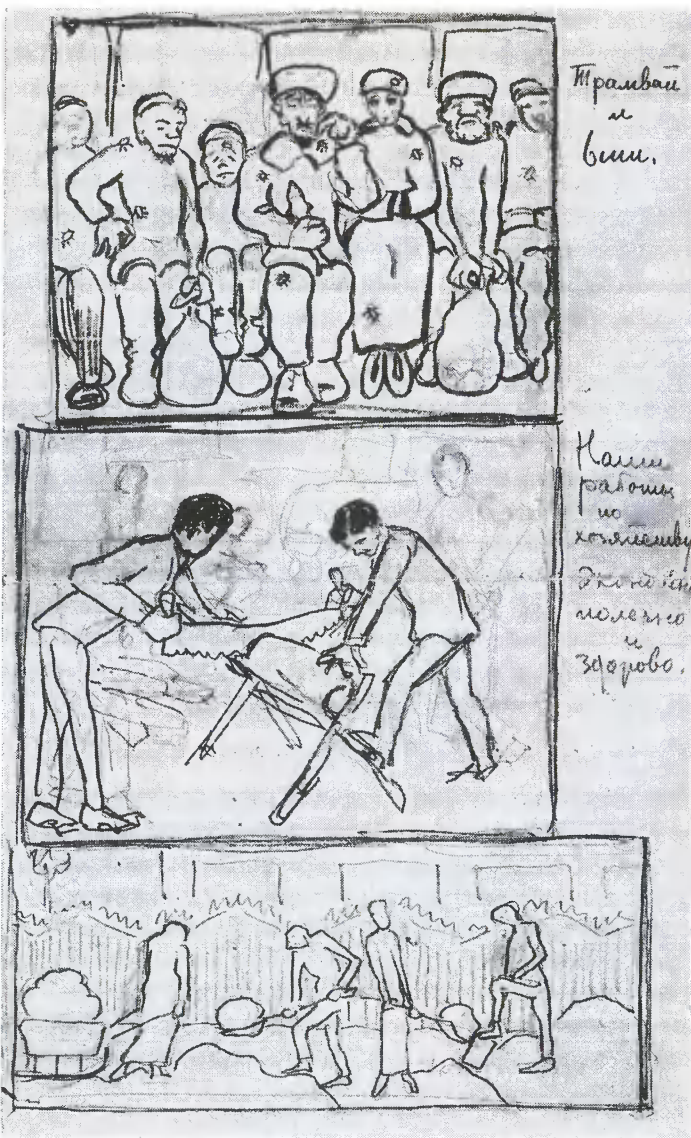 Трамвай
и
вши.
Наши
работы
по
хозяйству
полезно
и
здорово.